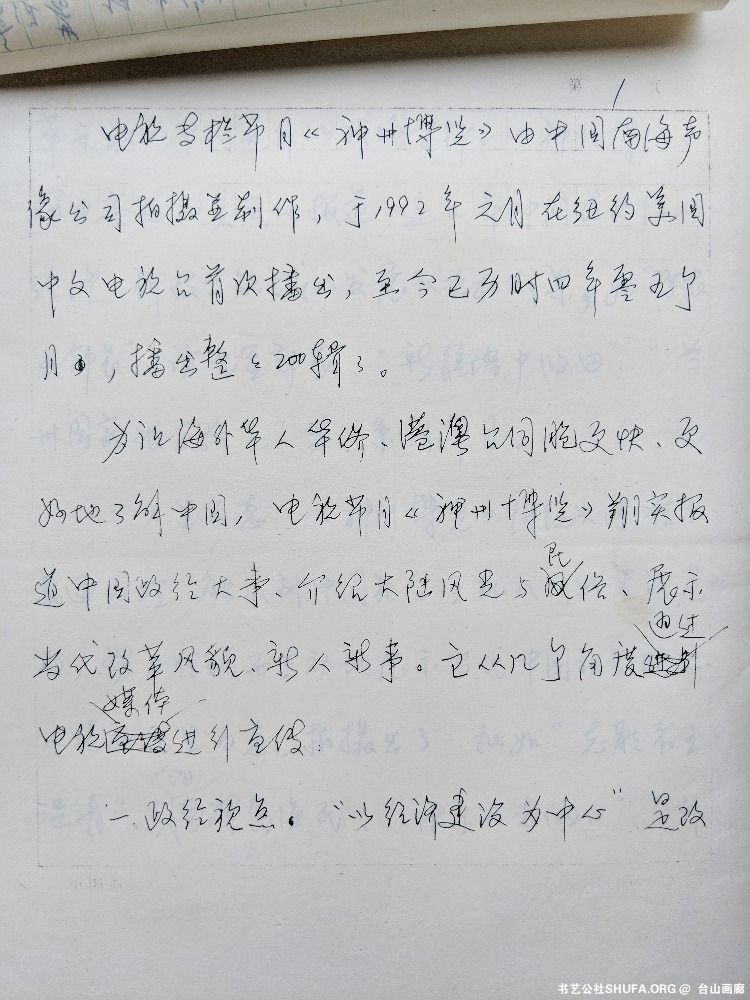 第 1 页
电视专栏节目《神州博览》由中国南海声
像公司拍摄并制作，于1992年元月在纽约美国
中文电视台首次播出，至今已历时四年零五个
月，播出整整200辑了。
为让海外华人华侨、港澳台同胞更快、更
好地了解中国，电视节目《神州博览》翔实报
道中国政经大事、介绍大陆风光与民俗、展示
当代改革风貌、新人新事。它从几个角度通过
电视媒体进行宣传：
一、政经视点。"以经济建设为中心"是改
书艺公社SHUFA.ORG @ 台山画廊